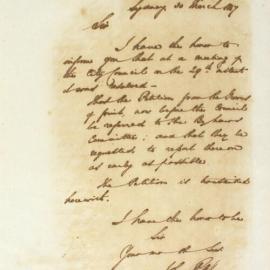 Sydney 30 March
Sir
I have the honor to
inform you that at a meeting of
the City Council on the 29th instant
it was Resolved—
That the Petition from the
of fruit, now before the Council
be referred to the
Committee; and that they be
requested to report thereon
as early as possible
The Petition is
herewith.
I have the honor to be
Sir
Your